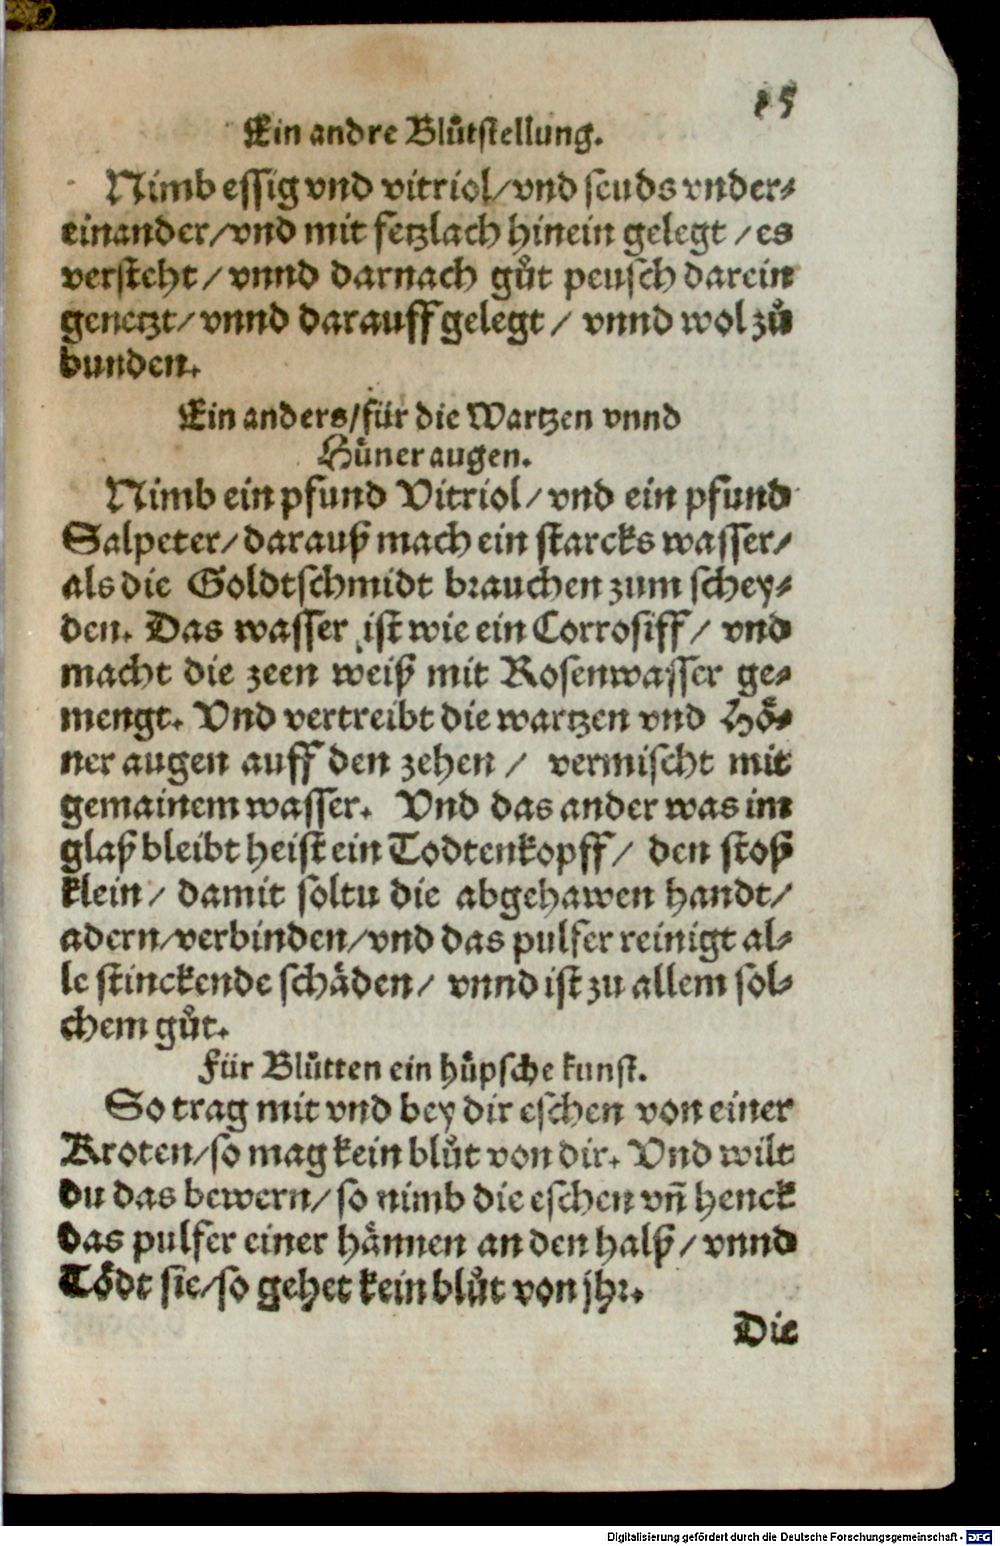 15
Ein andre Blůtstellung.
Nimb essig vnd vitriol/vnd seuds vnder⸗
einander/vnd mit fetzlach hinein gelegt /es
versteht/ vnnd darnach gůt peusch darein
genetzt/ vnnd darauff gelegt / vnnd wol zů
bunden.
Ein anders/für die Wartzen vnnd
Hůner augen.
Nimb ein pfund Vitriol/ vnd ein pfund
Salpeter/ darauß mach ein starcks wasser/
als die Goldtschmidt brauchen zum schey⸗
den. Das wasser ist wie ein Corrosiff/ vnd
macht die zeen weiß mit Rosenwasser ge⸗
mengt. Vnd vertreibt die wartzen vnd Hö⸗
ner augen auff den zehen / vermischt mit
gemainem wasser. Vnd das ander was im
glaß bleibt heist ein Todtenkopff/ den stoß
klein/ damit soltu die abgehawen handt/
adern/verbinden/vnd das pulfer reinigt al⸗
le stinckende schäden/ vnnd ist zu allem sol⸗
chem gůt.
Für Blůtten ein hůpsche kunst.
So trag mit vnd bey dir eschen von einer
Kroten/so mag kein blůt von dir. Vnd wilt
du das bewern/so nimb die eschen vñ henck
das pulfer einer hännen an den halß/ vnnd
Tödt sie/so gehet kein blůt von jhr.
Die
Digitalisierung gefördert durch die Deutsche Forschungsgemeinschaft - DFG